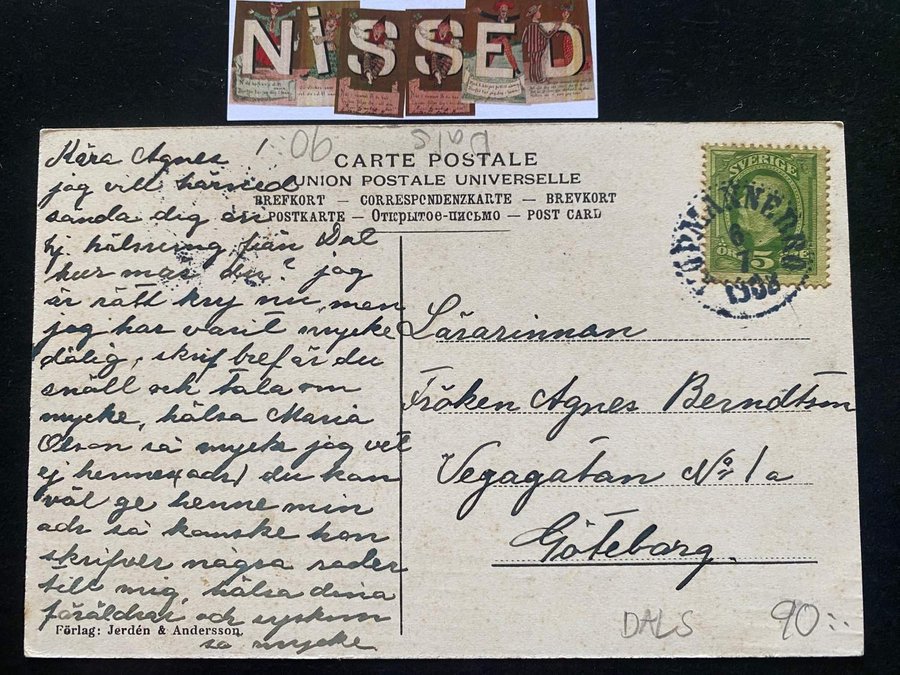 NiSSED
90
DALS
CARTE POSTALE
UNION POSTALE UNIVERSELLE
BREFKORT — CORRESPONDENZKARTE — BREVKORT
POSTKARTE — Открытое-письмо — POST CARD
Kära Agnes
jag vill härmed
sända dig en
hj hälssning från Dal
hur mår du? jag
är rätt kry nu, men
jag har varit mycke
dålig, skrif bref är du
snäll och tala om
mycke, hälsa Maria
Olson så mycke jag vet
ej hennes (adr) du kan
väl ge henne min
adr så kanske hon
skrifver några rader
till mig, hälsa dina
föräldrar och syskon
så mycke
Förlag: Jerdén & Andersson.
SVERIGE
5
6
1
1908
Lärarinnan
Fröken Agnes Berndtson
Vegagatan No 1a
Göteborg.
DALS
90:-